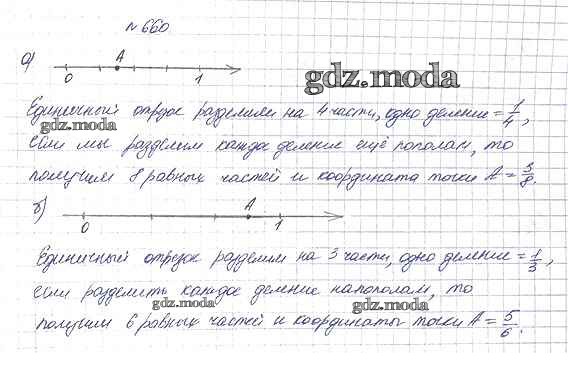 №660
а) A
0 1
gdz.moda
Единичный отрезок разделили на 4 части, одно деление = 1/4,
gdz.moda
если мы разделим каждое деление ещё пополам, то
получим 8 равных частей и координата точки A = 3/8.
б) A
0 1
Единичный отрезок разделим на 3 части, одно деление = 1/3,
если разделить каждое деление напополам, то
gdz.moda gdz.moda
получим 6 равных частей и координаты точки A = 5/6.